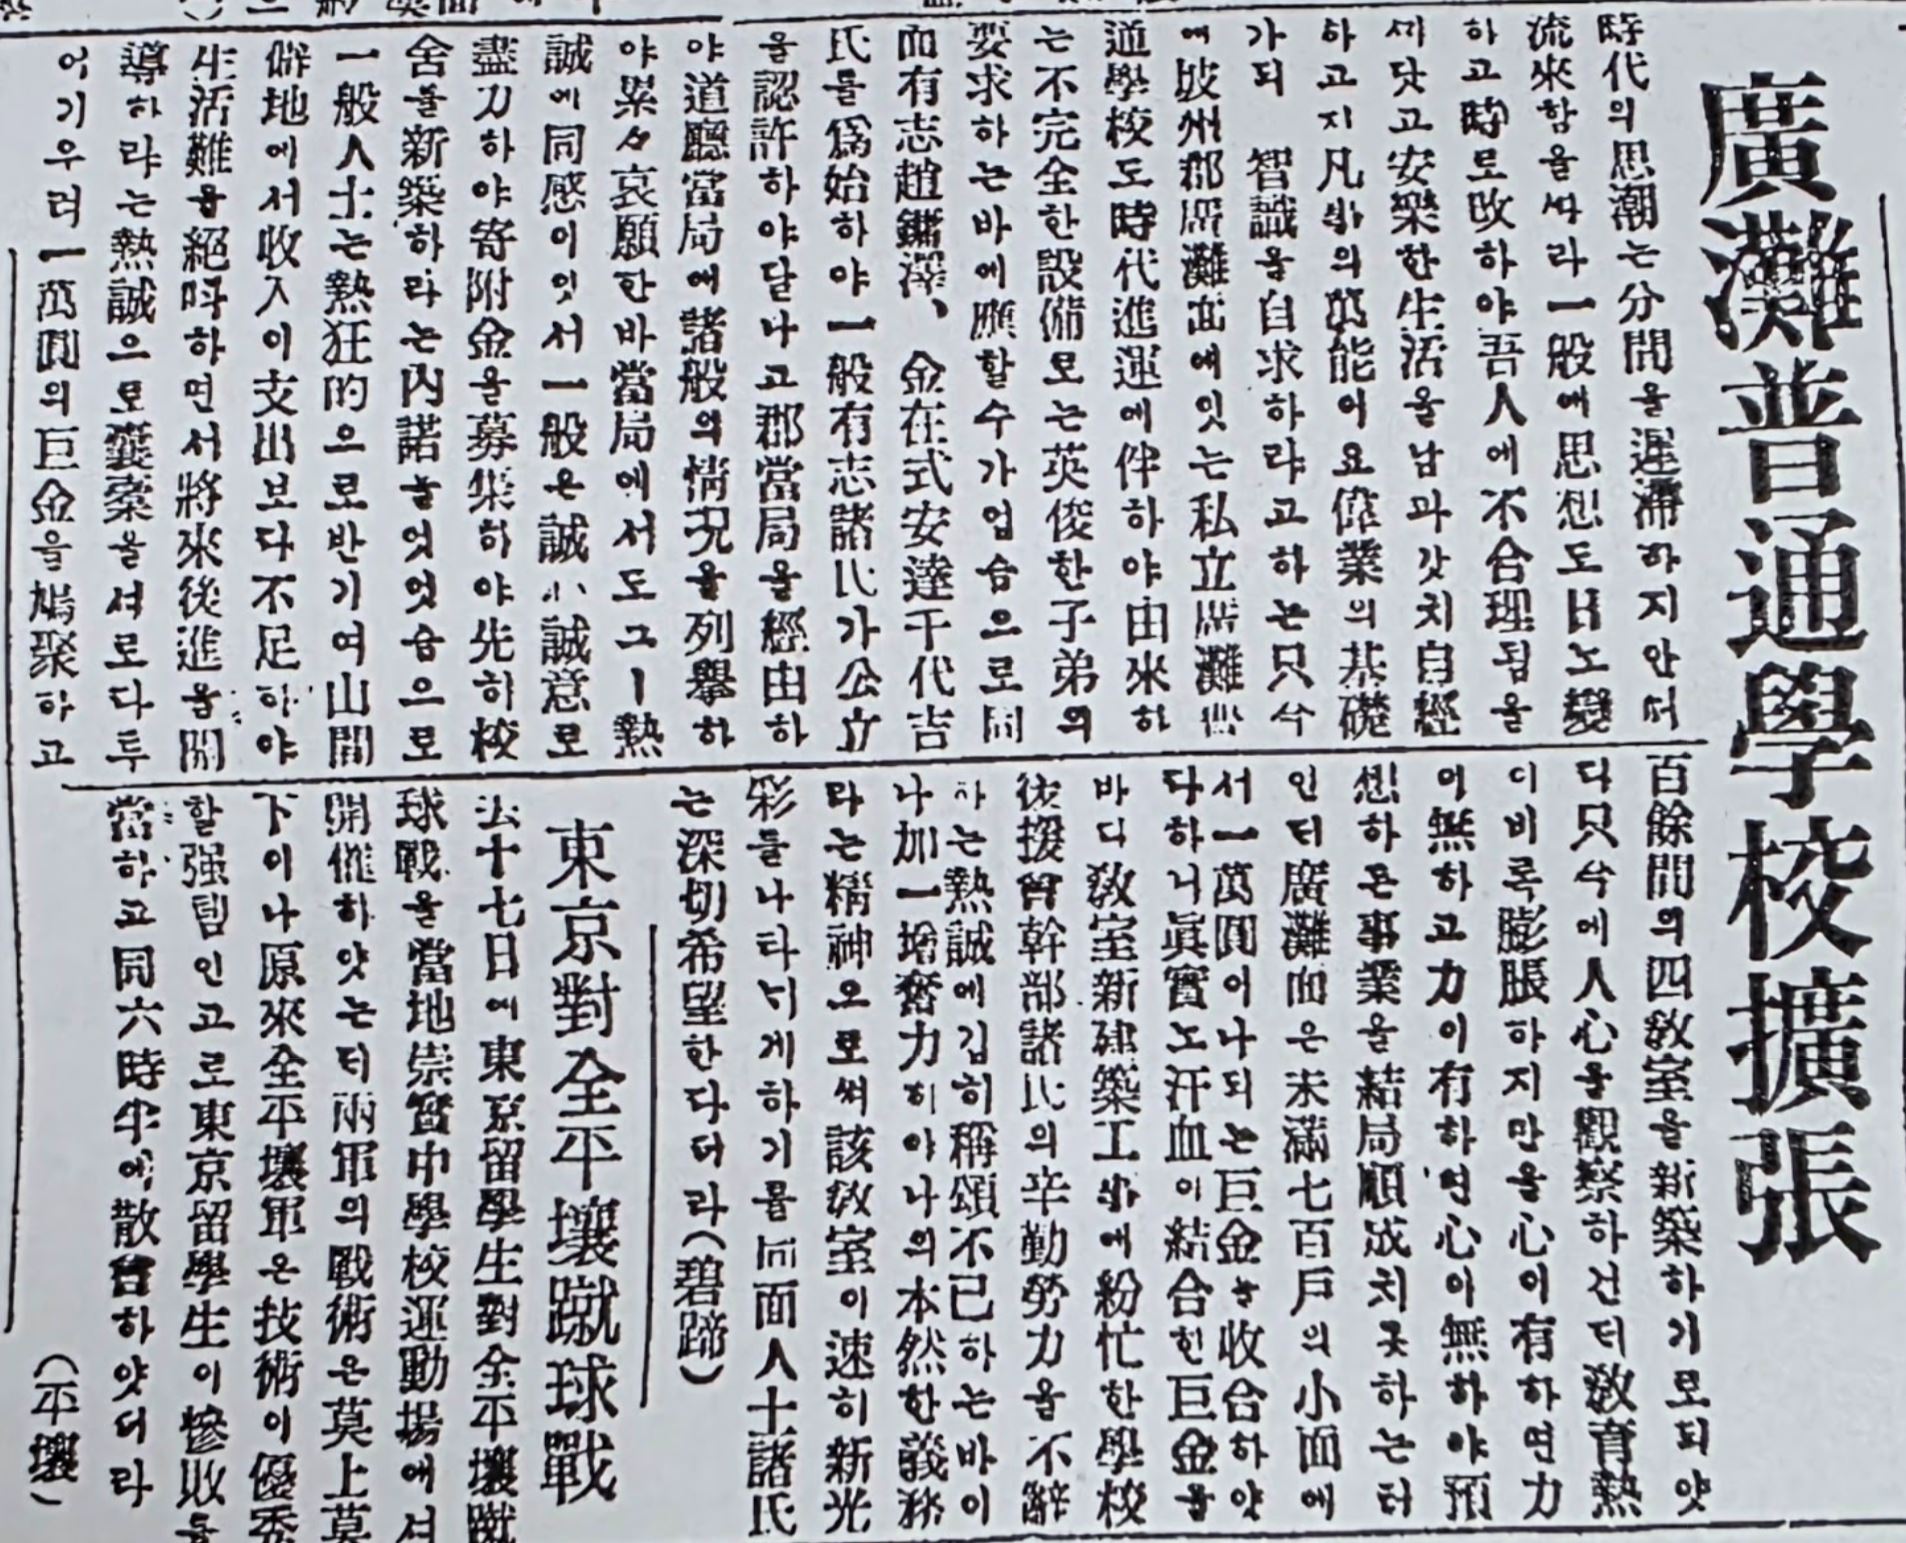 廣灘普通學校擴張
時代의思潮는分間을遲滯하지안더
流來함을따라一般에思想도日노變
하고時로改하야吾人에不合理됨을
깨닷고安樂한生活을남과갓치自經
하고지凡배의萬能이요偉業의基礎
가되 智識을自求하랴고하는只今
에坡州郡廣灘面에잇는私立廣灘普
通學校도時代進運에伴하야由來하
는不完全한設備로는英俊한子弟의
要求하는바에應할수가업슴으로同
面有志趙鏞澤、金在式安達干代吉
氏를爲始하야一般有志諸氏가公立
을認許하야달나고郡當局을經由하
야道廳當局에諸般의情況을列擧하
야累々哀願한바當局에서도그ㅣ熱
誠에同感이잇서一般은誠心誠意로
盡力하야寄附金을募集하야先히校
舍를新築하라는內諾을엇엇슴으로
一般人士는熱狂的으로반기여山間
僻地에서收入이支出보다不足하야
生活難을絕叫하면서將來後進을開
導하랴는熱誠으로囊橐을셔로다투
어기우려一萬圓의巨金을鳩聚하고
百餘間의四敎室을新築하기로되얏
다只今에人心을觀察하건디敎育熱
이비록膨脹하지만을心이有하면力
이無하고力이有하면心이無하야預
想하든事業을結局順成치못하는터
인디廣灘面은未滿七百戶의小面에
서一萬圓이나되는巨金을收合하얏
다하니眞實노汗血이結合힌巨金을
바디敎室新建築工事에紛忙한學校
後援會幹部諸氏의辛勤勞力을不辭
하는熱誠에깁히稱頌不已하는바이
나加一增奮力히야나의本然한義務
라는精神으로써該敎室이速히新光
彩를나타너게하기를同面人士諸氏
는深切希望한다더라(碧蹄)
東京對全平壤蹴球戰
去十七日에東京留學生對全平壤蹴
球戰을當地崇實中學校運動場에셔
開催하얏는디兩軍의戰術은莫上莫
下이나原來全平壤軍은技術이優秀
할强팀인고로東京留學生이慘敗를
當하고同六時半에散會하얏더라
(平壤)